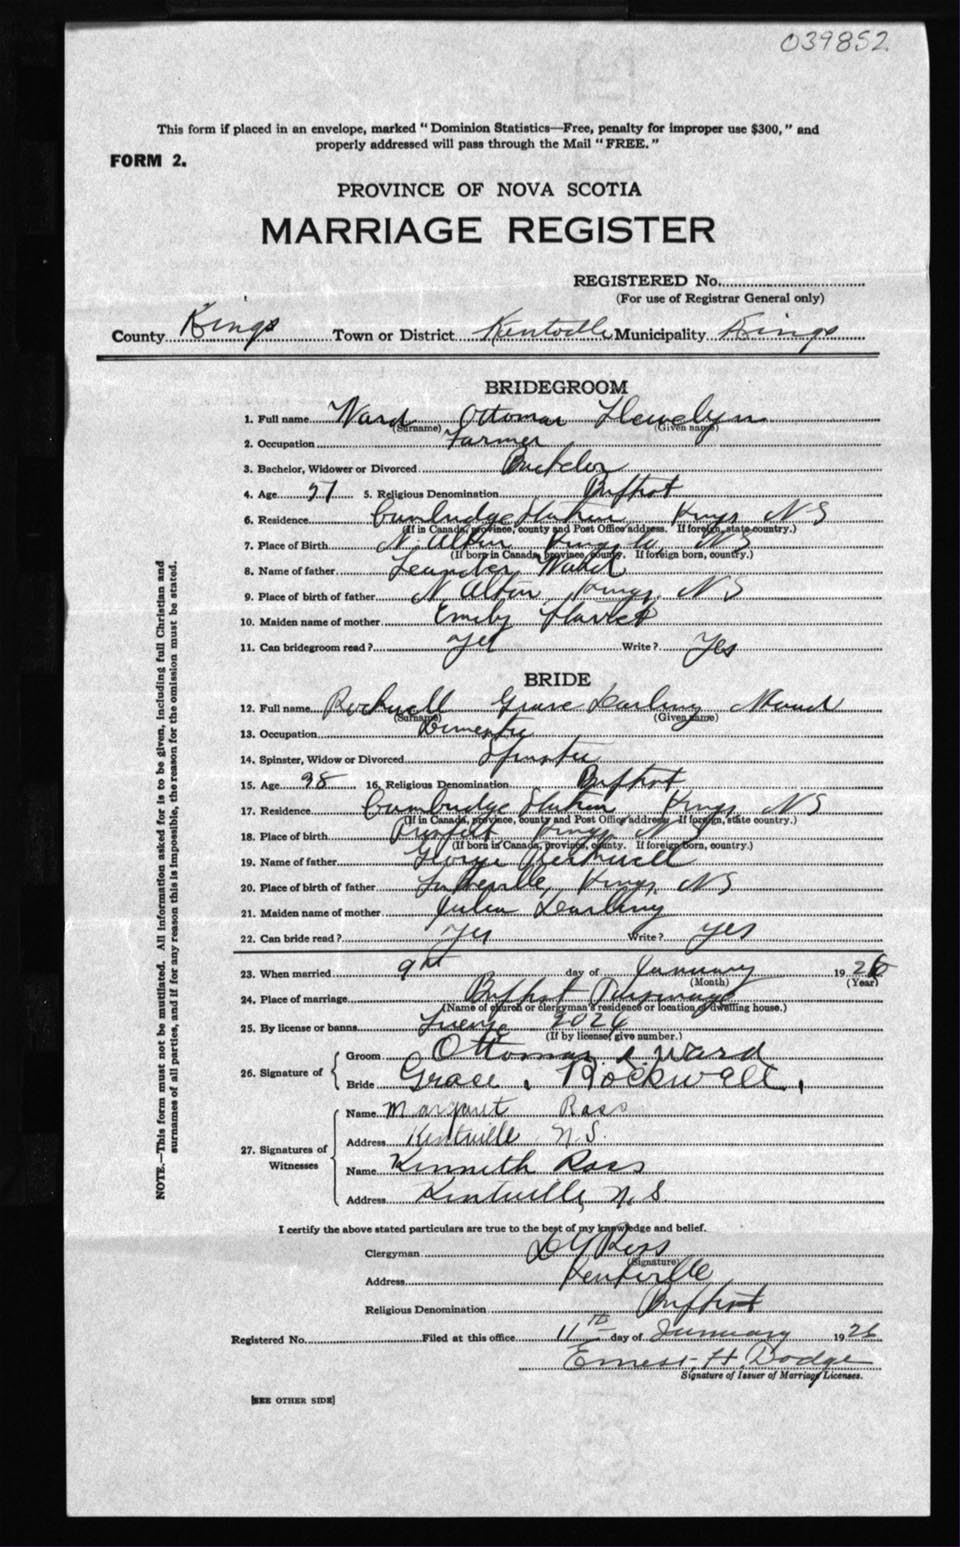 039852
This form if placed in an envelope, marked "Dominion Statistics—Free, penalty for improper use $300," and
properly addressed will pass through the Mail "FREE."
FORM 2.
PROVINCE OF NOVA SCOTIA
MARRIAGE REGISTER
REGISTERED No.
(For use of Registrar General only)
County Kings Town or District Kentville Municipality Kings
BRIDEGROOM
1. Full name Ward Ottomar Llewelyn
(Surname) (Given name)
2. Occupation Farmer
3. Bachelor, Widower or Divorced Bachelor
4. Age 5. Religious Denomination Baptist
6. Residence Cambridge Station Kings N S
(If in Canada, province, county and Post Office address. If foreign, state country.)
7. Place of Birth N. Alton Kings Co N S
(If born in Canada, province, county. If foreign born, country.)
8. Name of father Leander Ward
9. Place of birth of father N. Alton Kings N S
10. Maiden name of mother Emily
11. Can bridegroom read? Yes Write? Yes
BRIDE
12. Full name Rockwell Grace Darling Maud
(Surname) (Given name)
13. Occupation Domestic
14. Spinster, Widow or Divorced Spinster
15. Age 16. Religious Denomination Baptist
17. Residence Cambridge Station Kings N S
(If in Canada, province, county and Post Office address. If foreign, state country.)
18. Place of birth Prospect Kings N S
(If born in Canada, province, county. If foreign born, country.)
19. Name of father George Rockwell
20. Place of birth of father Kings, N S
21. Maiden name of mother Julia Darling
22. Can bride read? Yes Write? Yes
23. When married 9th day of January 1926
(Month) (Year)
24. Place of marriage Baptist Parsonage
(Name of church or clergyman's residence or location of dwelling house.)
25. By license or banns License 2026
(If by license, give number.)
26. Signature of
Groom Ottomar L Ward
Bride Grace Rockwell
27. Signatures of Witnesses
Name Margaret Ross
Address Kentville N.S.
Name Kenneth Ross
Address Kentville, N.S
I certify the above stated particulars are true to the best of my knowledge and belief.
Clergyman Ross
(Signature)
Address Kentville
Religious Denomination Baptist
Registered No. Filed at this office 11th day of January 1926
Ernest H. Dodge
Signature of Issuer of Marriage Licenses.
[SEE OTHER SIDE]
NOTE.—This form must not be mutilated. All information asked for is to be given, including full Christian and
surnames of all parties, and if for any reason this is impossible, the reason for the omission must be stated.